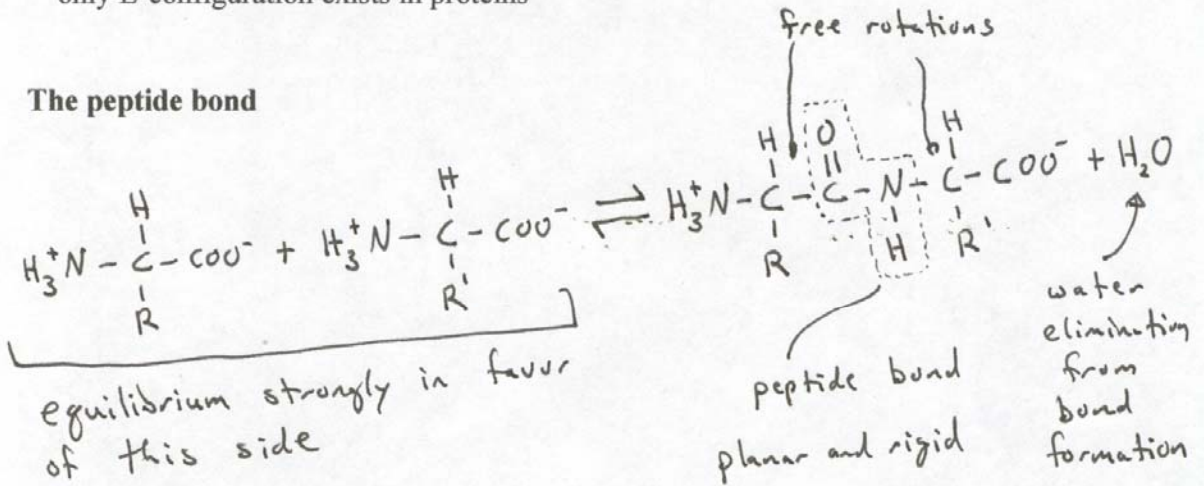 only L-configuration exists in proteins
free rotations
The peptide bond
H₃⁺N – C – COO⁻ + H₃⁺N – C – COO⁻ ⇌ H₃⁺N – C – C – N – C – COO⁻ + H₂O
H H H O H
R R' R H R'
equilibrium strongly in favor
of this side
peptide bond
planar and rigid
water
elimination
from
bond
formation